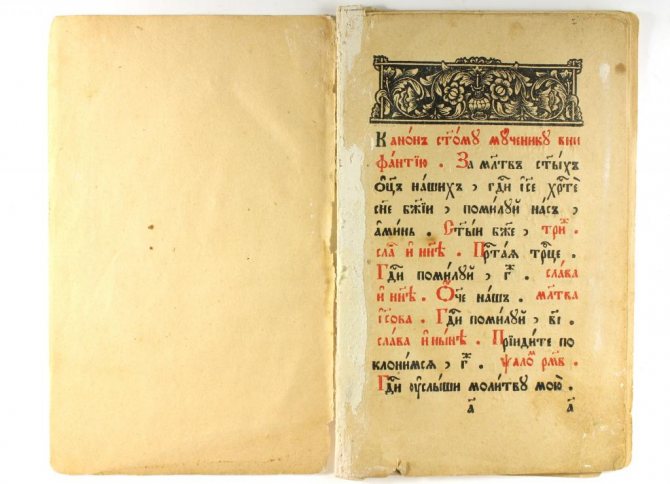 Кано́нъ ст҃о́мꙋ мч҃еникꙋ вни
фа́нтїю . За мл҃твъ ст҃ы́хъ
ѻ҆ц҃ъ на́шихъ , гд҇и і҆с҃е хр҇тѐ
сн҃е бж҃їи , поми́лꙋй на́съ ,
а҆ми́нь . Ст҃ы́и бж҃е , три́ж .
сла́ и҆ ны́нѣ . Прт҃ая трⷪ҇це .
Гд҇и поми́лꙋй , г҃ . сла́ва
и҆ ны́нѣ . Ѻ҆́ч҃е на́шъ . мл҃тва
і҆с҃ова . Гд҇и поми́лꙋй , в҃і .
сла́ва и҆ ны́нѣ . Прїиди́те по
клони́мсѧ , г҃ . ѱало́мъ рм҃в .
Гд҇и ᲂу҆слы́ши моли́твꙋ мою̀ .
а҃ а҃